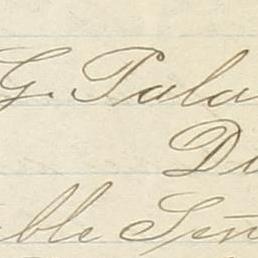 G. Pala
Di
ble Señ